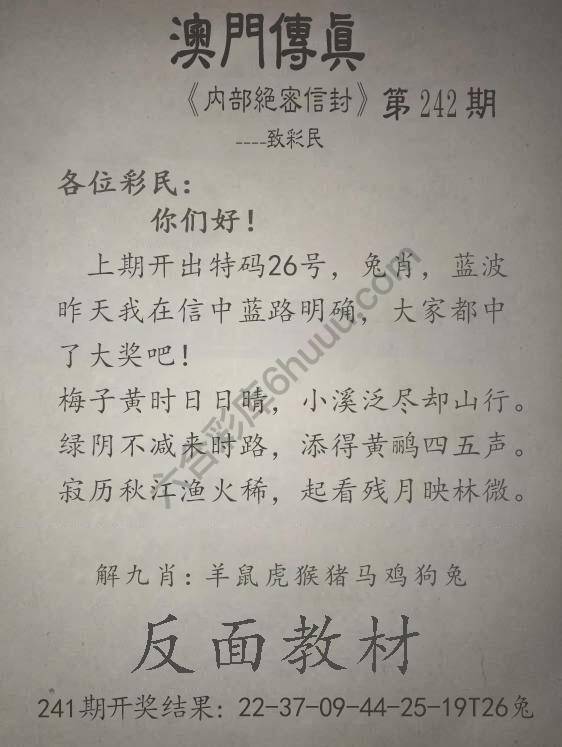 澳門傳眞
《内部絕密信封》第242期
----致彩民
各位彩民：
你们好！
上期开出特码26号，兔肖，蓝波
昨天我在信中蓝路明确，大家都中
了大奖吧！
梅子黄时日日晴，小溪泛尽却山行。
绿阴不减来时路，添得黄鹂四五声。
寂历秋江渔火稀，起看残月映林微。
六合彩库6huuu.com
解九肖：羊鼠虎猴猪马鸡狗兔
反面教材
241期开奖结果：22-37-09-44-25-19T26兔